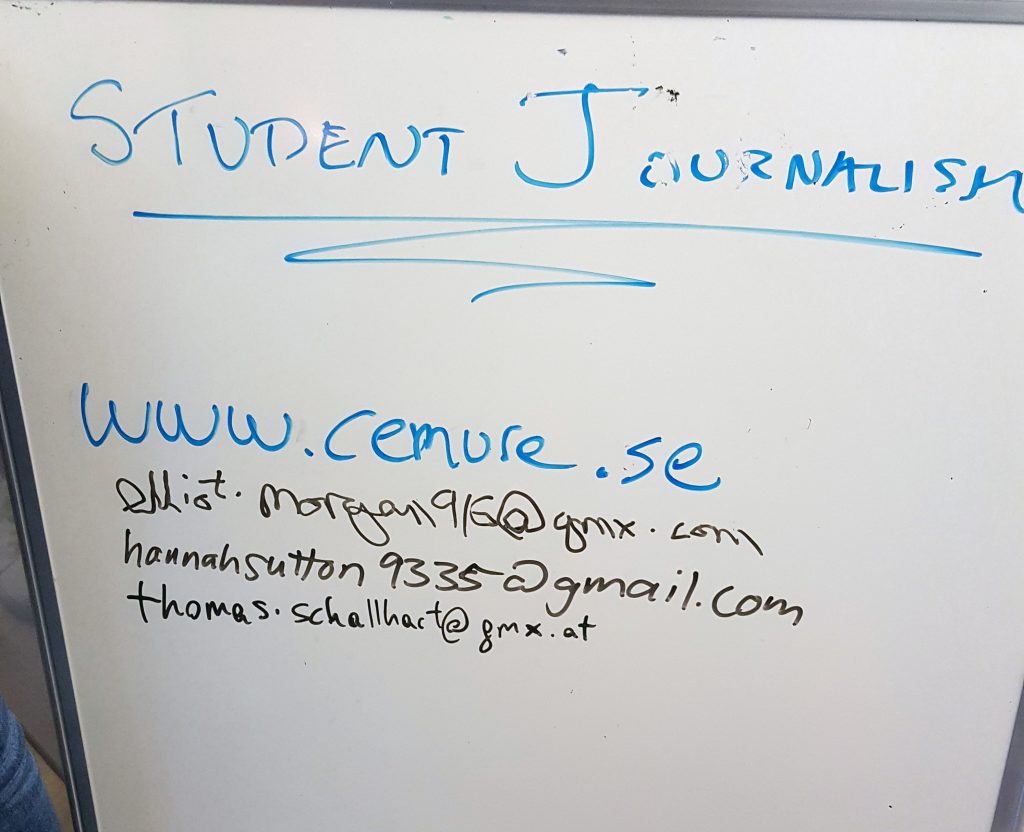 STUDENT JOURNALISM
www.cemure.se
elliot.morgan916@gmx.com
hannahsutton9335@gmail.com
thomas.schallhart@gmx.at